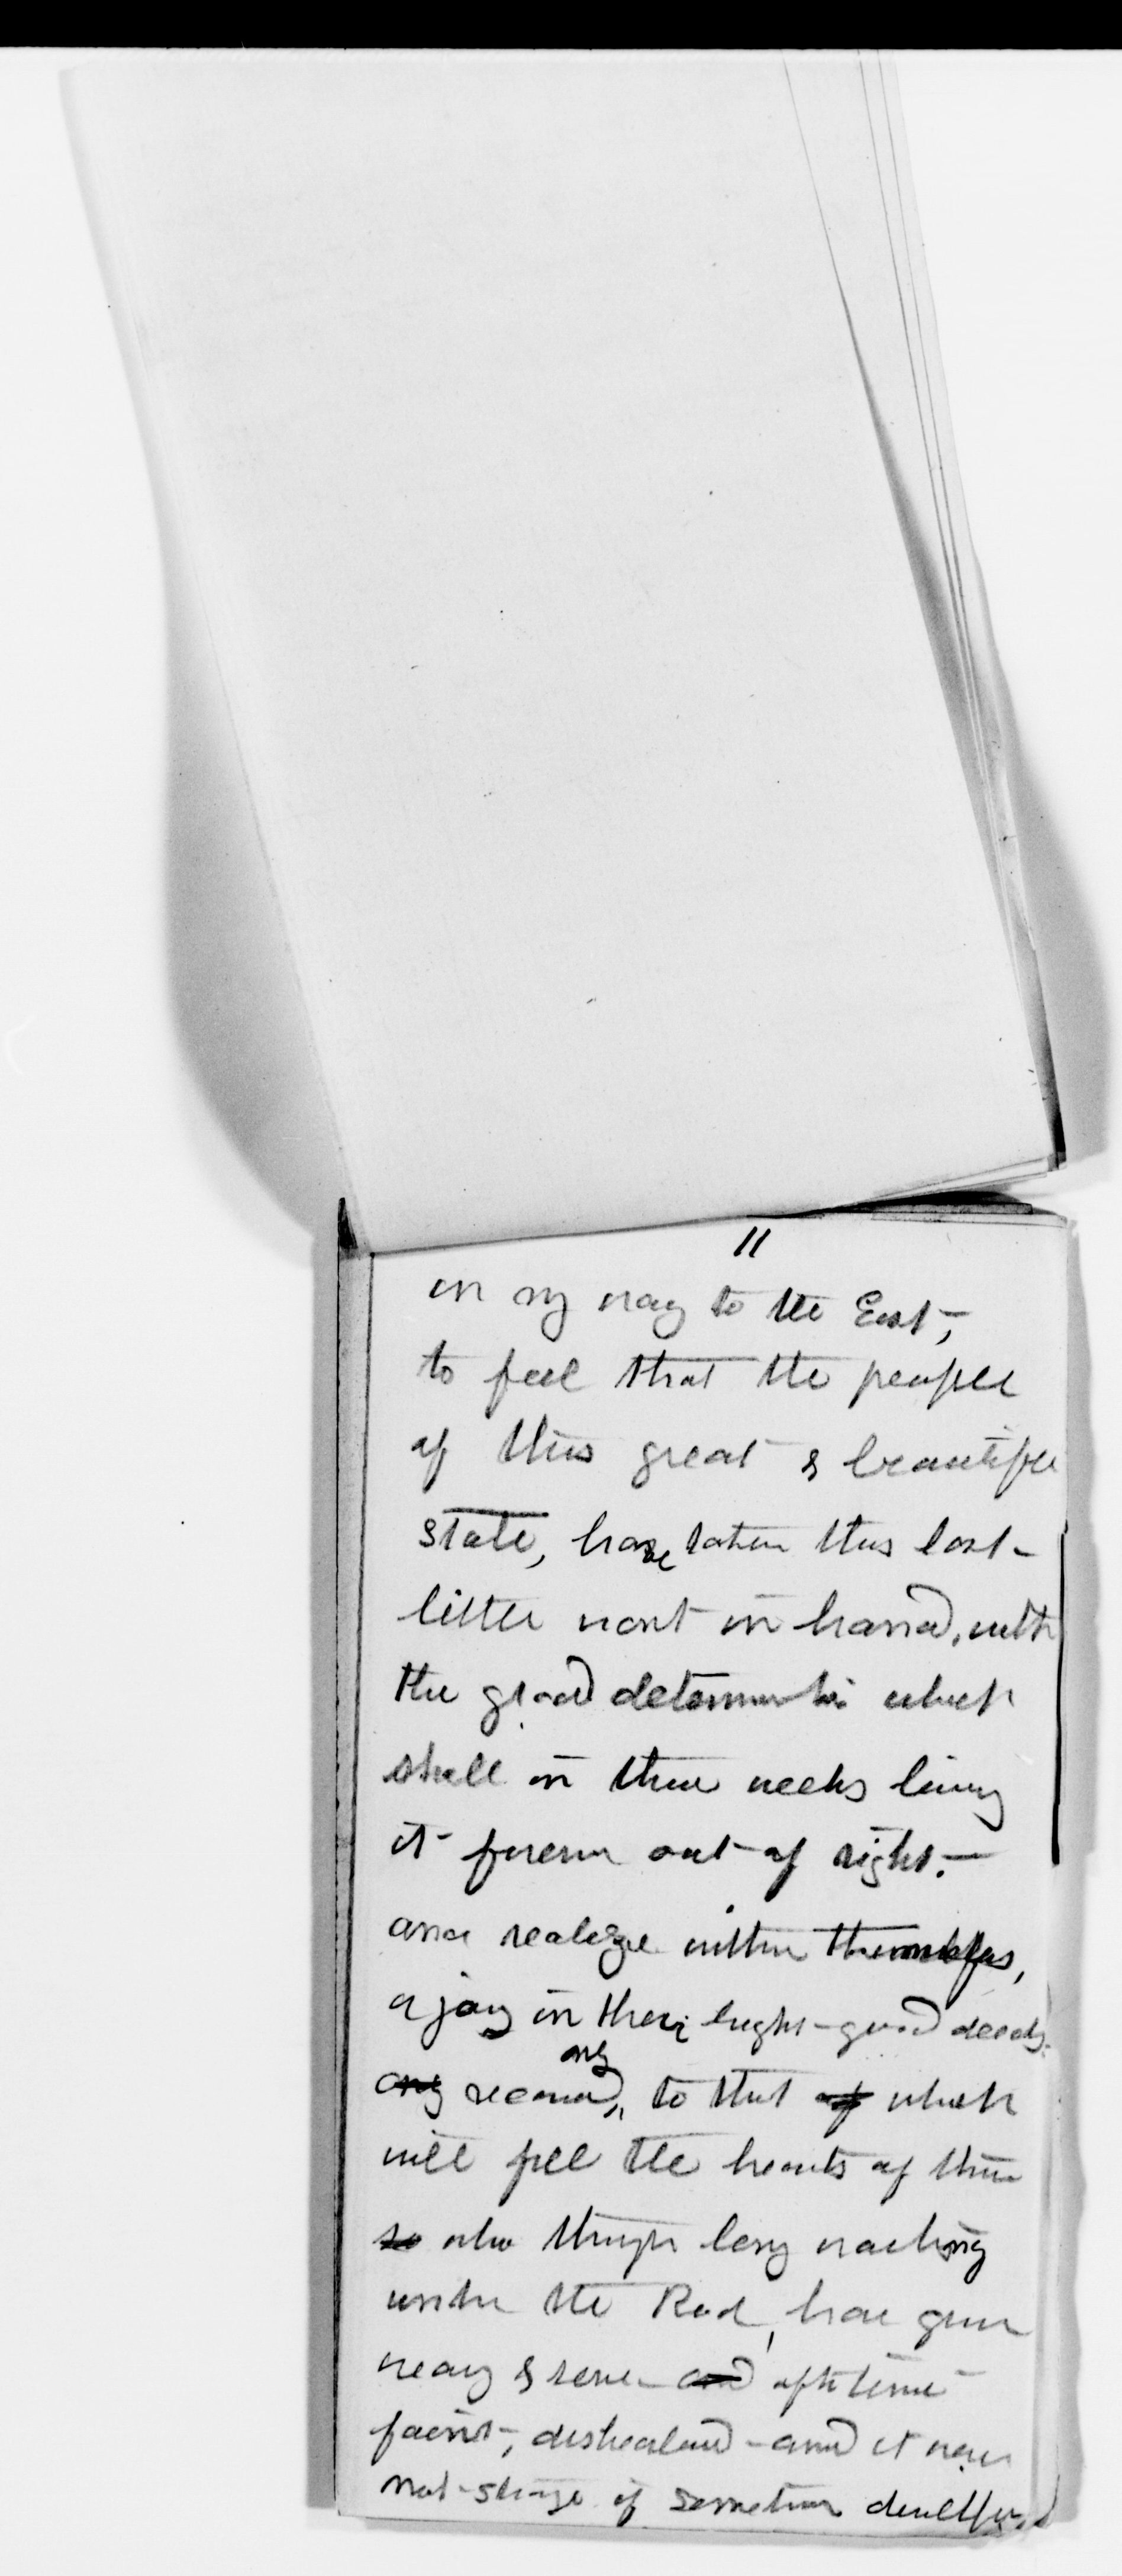 11
on my way to the East,—
to feel that the people
of this great & beautiful
state, have taken this last
little work in hand, with
the good determination which
shall in three weeks bring
it forever out of sight.—
and realize within themselves,
a joy in their bright good deeds.
any second, any to that of which
will fill the hearts of those
so who through long waiting
under the Rod, have grown
weary & sore and oft time
faint, disheartened - and it was
not strange if sometimes